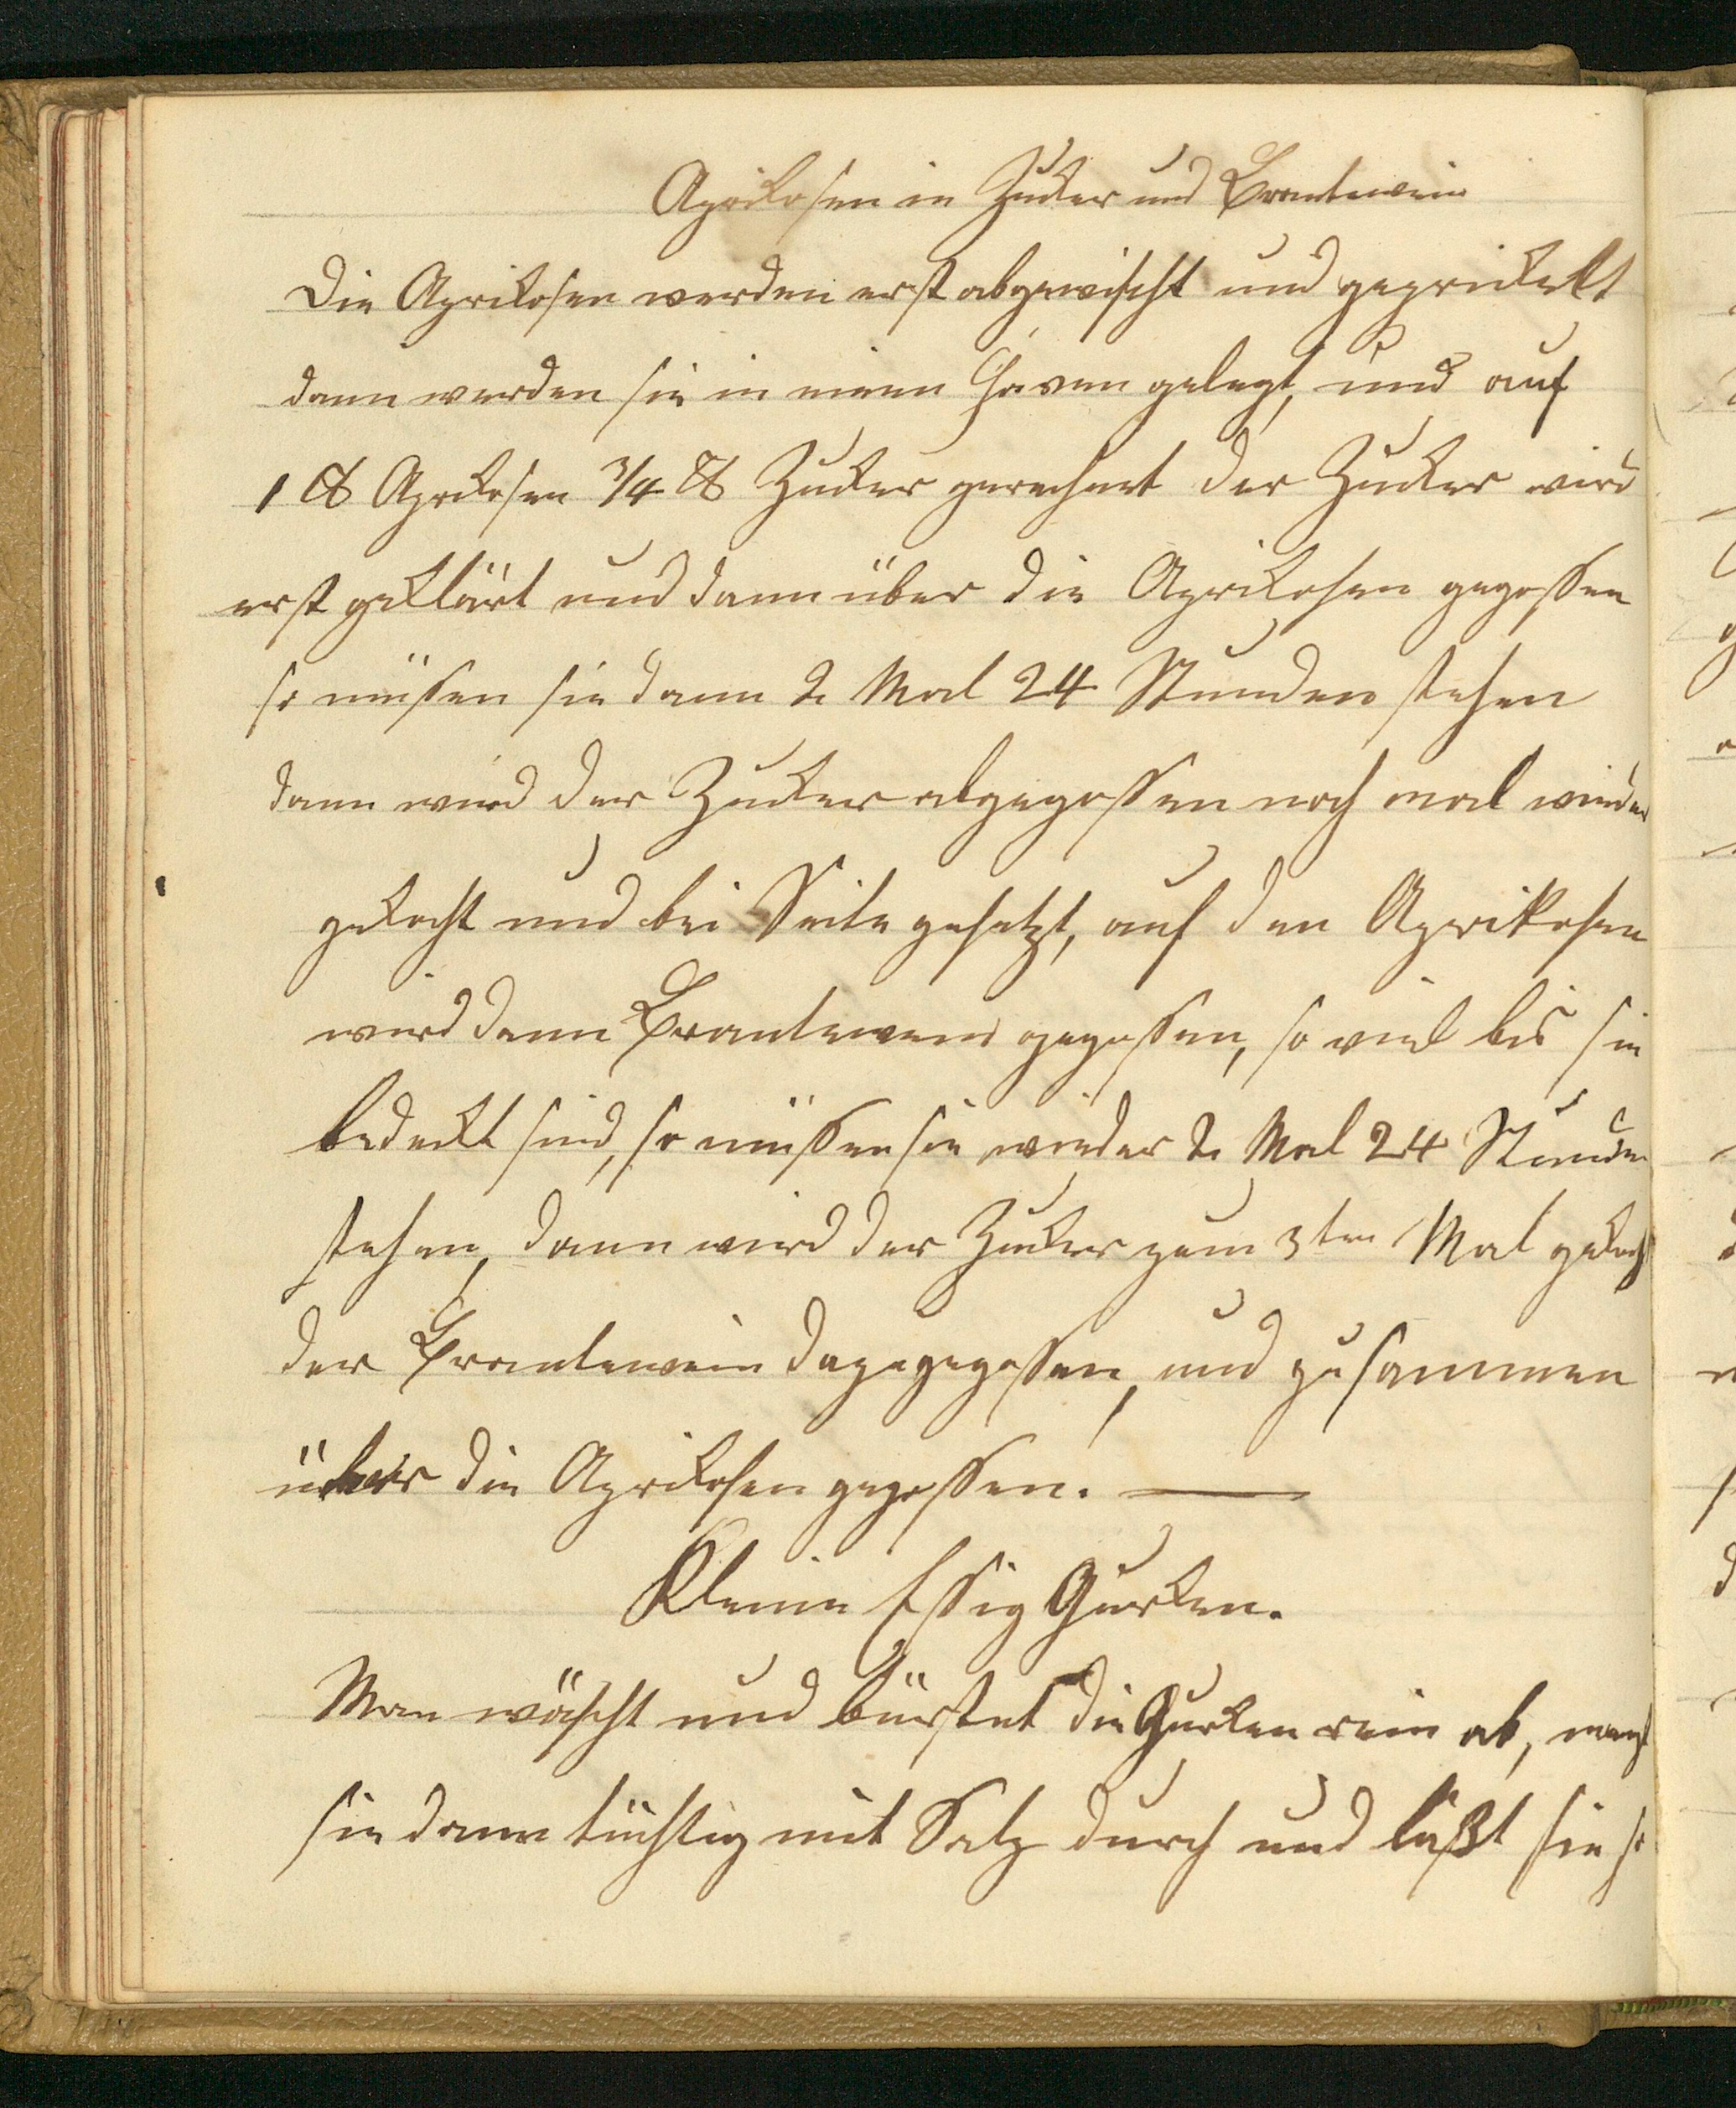 Aprikosen in Zucker und Brantewein
Die Aprikosen werden erst abgewischt und geprickelt
dann werden sie in einen Haven gelegt, und auf
1 ℔ Aprkosen 3/4 ℔ Zucker gerechnet der Zucker wird
erst geklärt und dann über die Aprikosen gegossen
so müssen sie dann 2 Mal 24 Stunden stehen
dann wird der Zucker abgegossen noch mal wieder
gekocht und bei Seite gesetzt, auf den Aprikosen
wird dann Brantewein gegossen, so viel bis sie
bedeckt sind, so müssen sie wieder 2 Mal 24 Stunden
stehen, dann wird der Zucker zum 3ten Mal gekocht
der Brantewein dazugegossen, und zusammen
über die Aprikosen gegossen. —
Kleine Essig Gurken.
Man wäscht und bürstet die Gurken rein ab, mengt
sie dann tüchtig mit Salz durch und läßt sie so